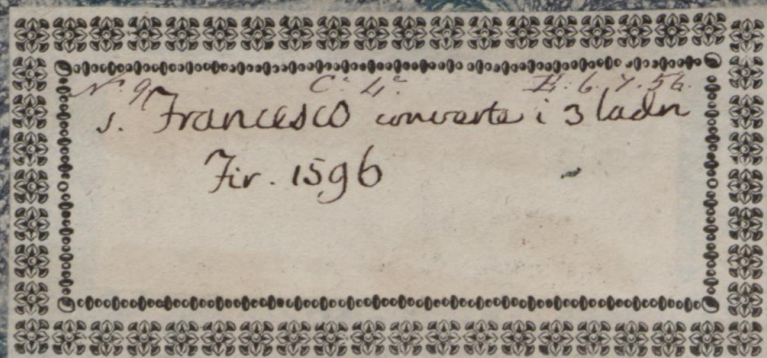 N.º 9 C.º 4.º B. 6. 7. 56.
S. Francesco converte i 3 ladri
Fir. 1596